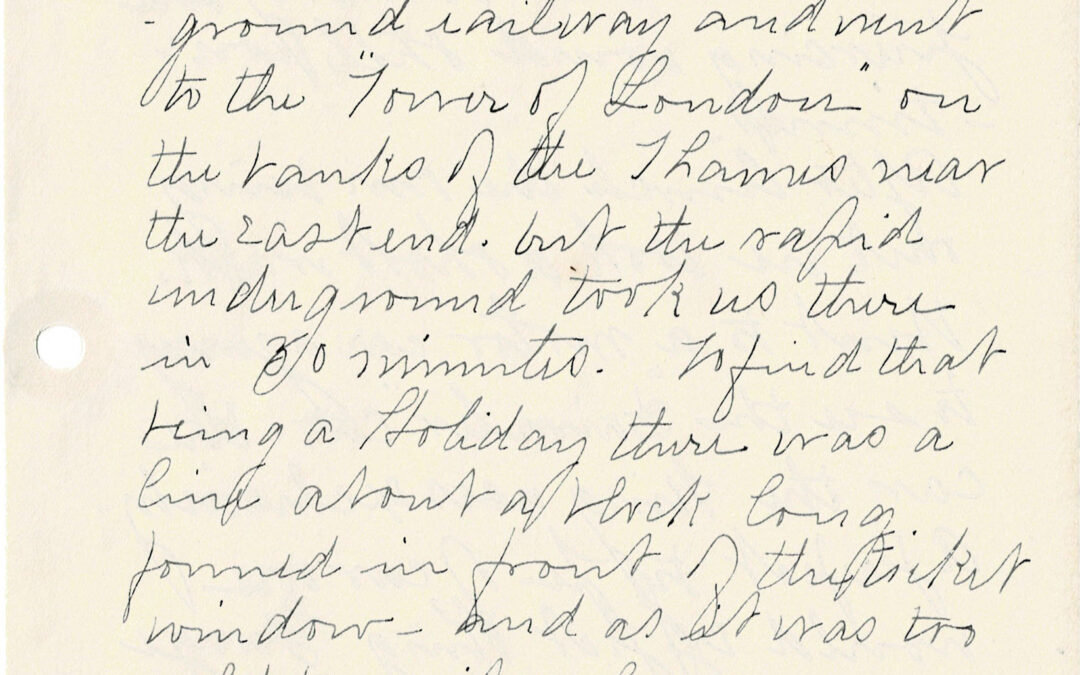 -ground railway and went
to the "Tower of London" on
the banks of the Thames near
the East end. but the rapid
underground took us there
in 30 minutes. To find that
being a Holiday there was a
line about a block long
formed in front of the ticket
window - and as it was too